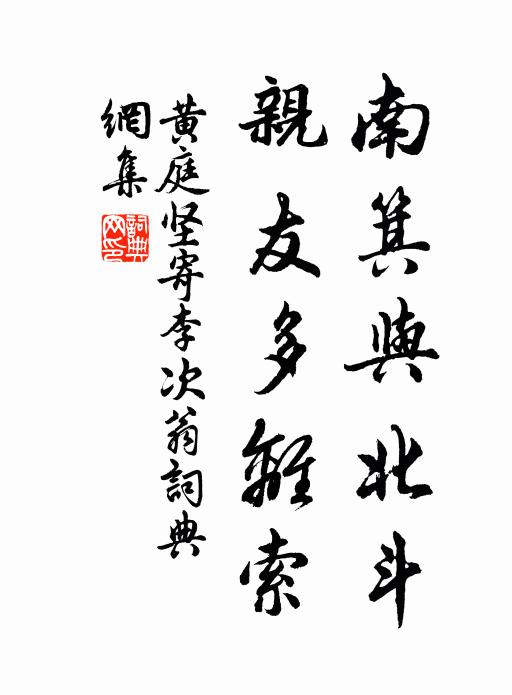 南箕與北斗
親友多離索
黄庭坚寄李次翁詞典
網集
詞典
网印